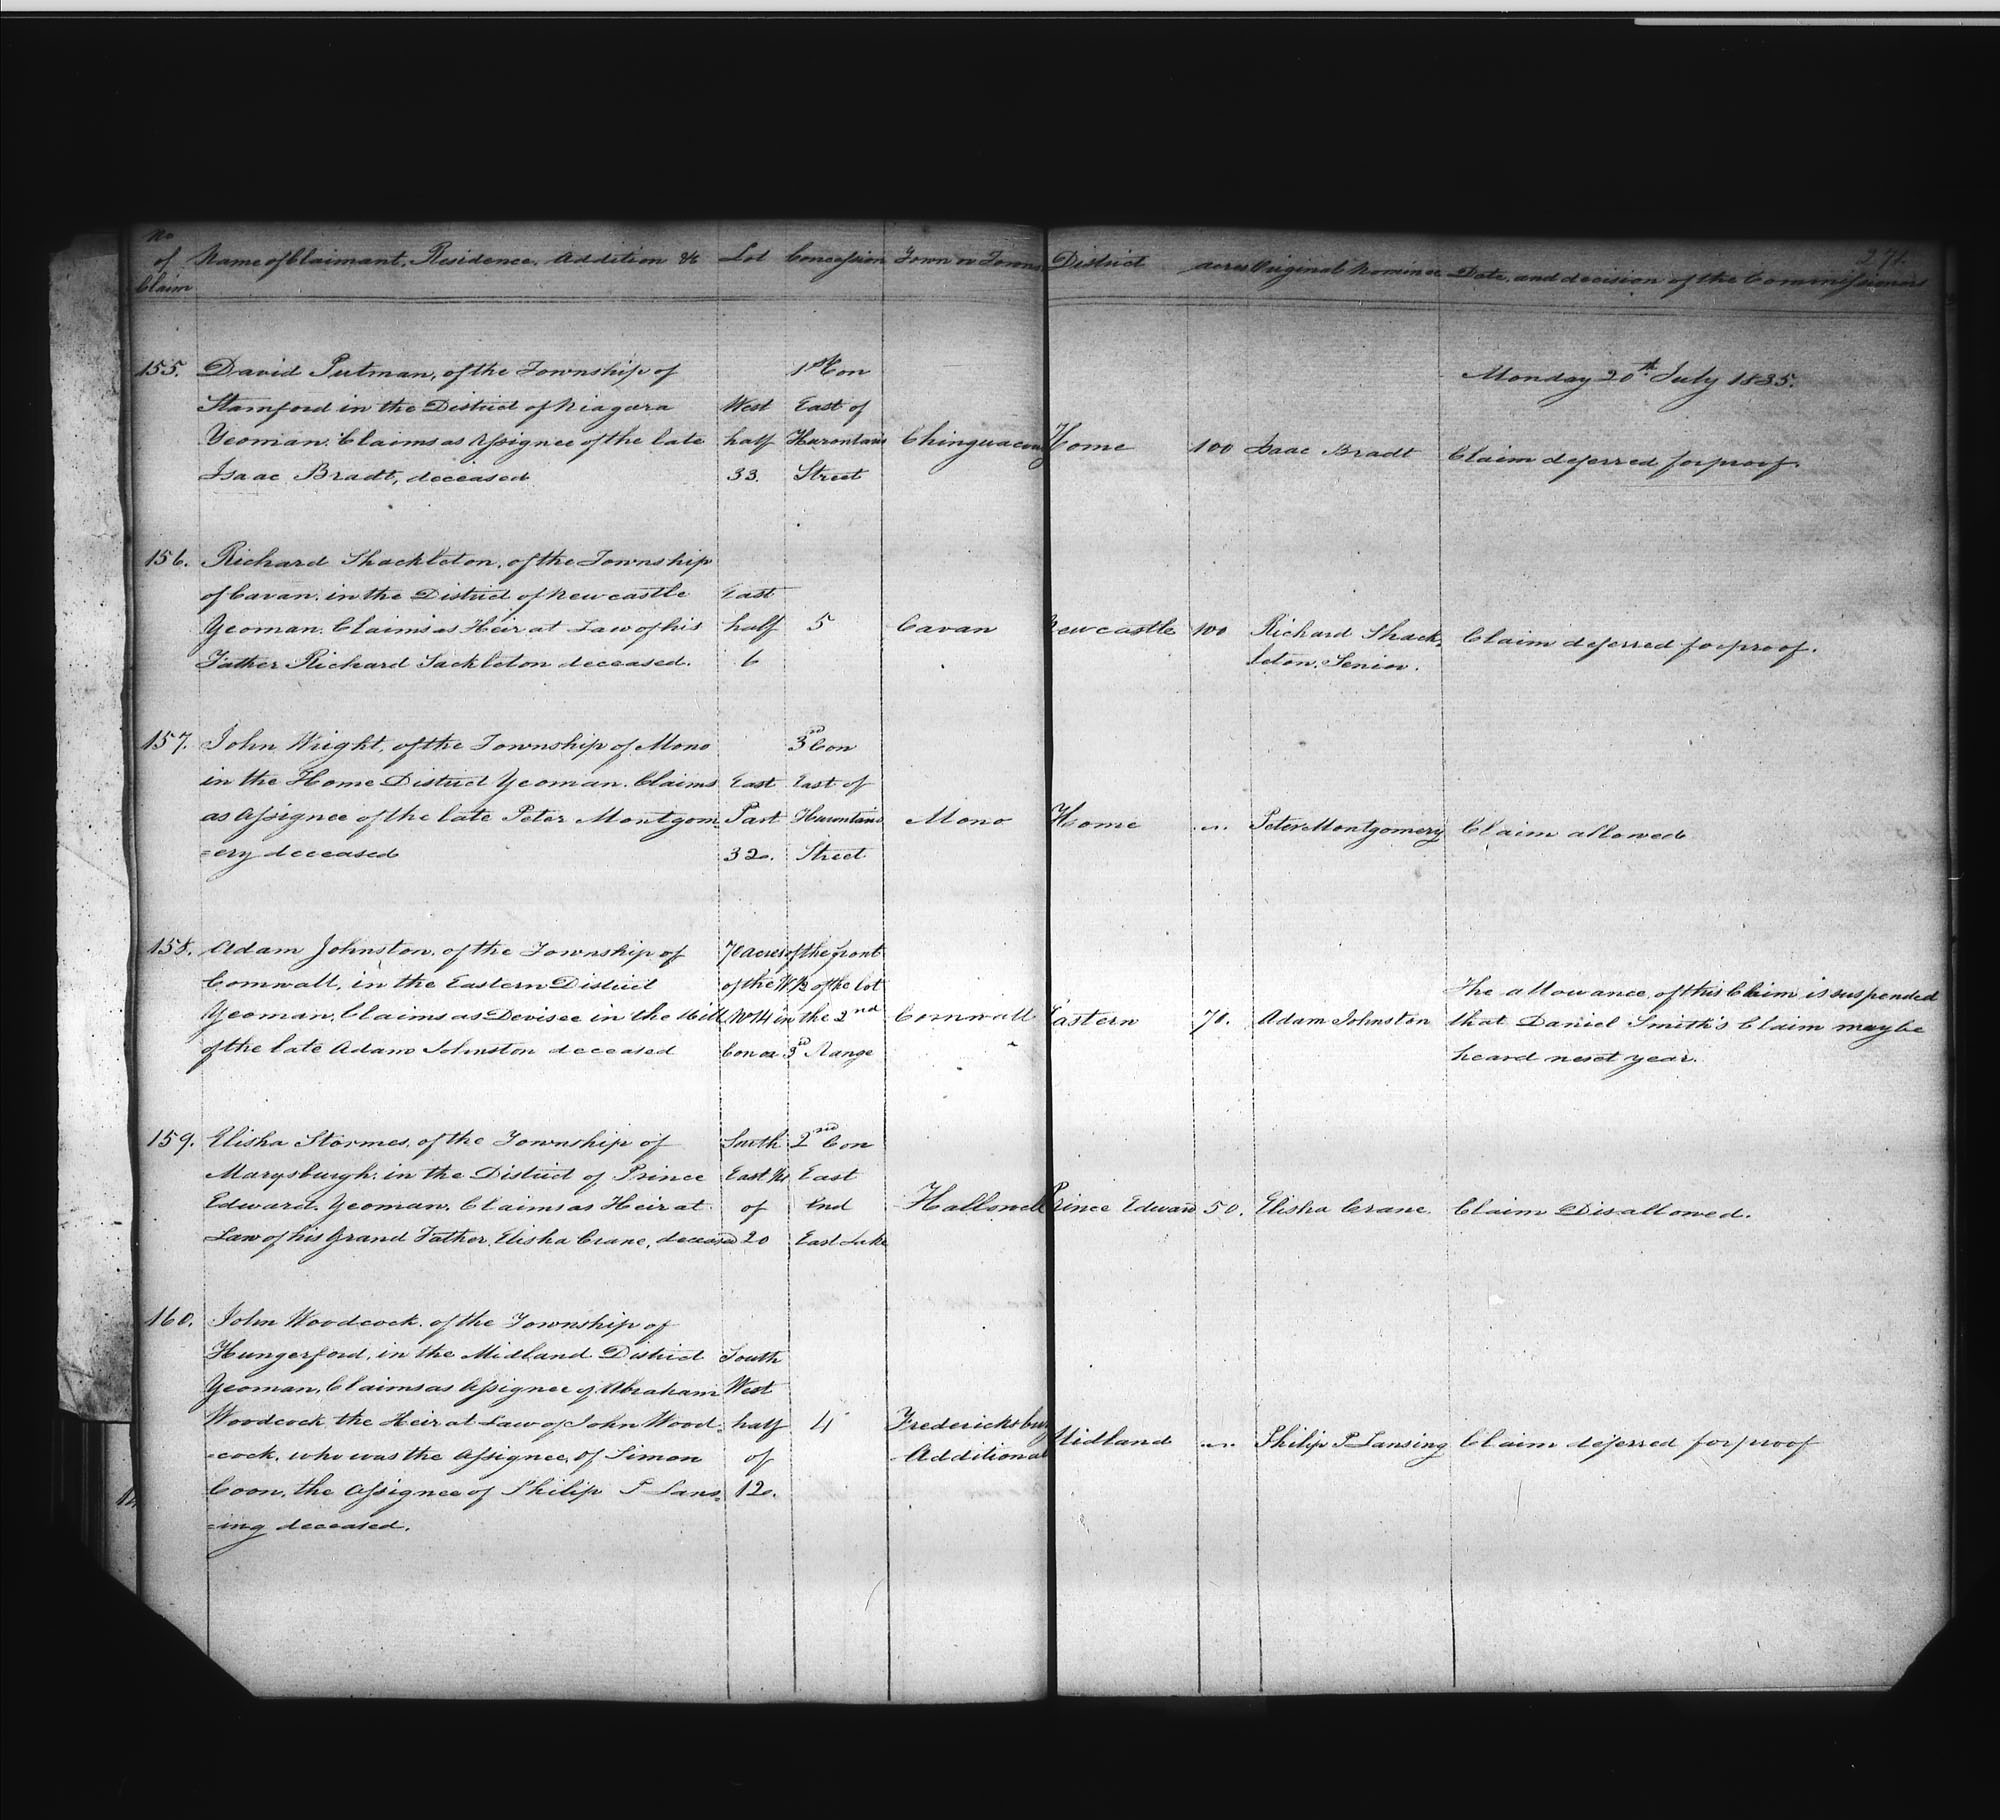 No
of Name of Claimant, Residence, Addition &c Lot Concession Town or Towns District acres Original Nominee Date, and decision of the Commissioners 271.
Claim
155. David Putman, of the Township of 1st Con Monday 20th July 1835.
Stamford in the District of Niagara West East of
Yeoman. Claims as Assignee of the late half Hurontario Chinguacousy Home 100 Isaac Bradt Claim deferred for proof.
Isaac Bradt, deceased 33. Street
156. Richard Shackleton, of the Township
of Cavan, in the District of Newcastle East
Yeoman. Claims as Heir at Law of his half 5 Cavan Newcastle 100 Richard Shack= Claim deferred for proof.
Father Richard Sackleton deceased. 6 leton. Senior.
157. John Wright, of the Township of Mono 3rd Con
in the Home District Yeoman. Claims East East of
as Assignee of the late Peter Montgom= Part Hurontario Mono Home .„. Peter Montgomery Claim allowed
=ery deceased 32. Street
158. Adam Johnston, of the Township of 70 acres of the front
Cornwall, in the Eastern District of the W ½ of the lot The allowance of this Claim is suspended
Yeoman, Claims as Devisee in the Will No 14 in the 2nd Cornwall Eastern 70. Adam Johnston that Daniel Smith's Claim may be
of the late Adam Johnston deceased Con or 3rd Range heard next year.
159. Elisha Stormes, of the Township of South 2nd Con
Marysburgh, in the District of Prince East ¼ East
Edward. Yeoman. Claims as Heir at of End Hallowell Prince Edward 50. Elisha Crane. Claim Disallowed.
Law of his Grand Father, Elisha Crane, deceased 20 East Lake
160. John Woodcock, of the Township of
Hungerford, in the Midland District South
Yeoman, Claims as Assignee of Abraham West
Woodcock the Heir at Law of John Wood= half 4 Fredericksburg Midland .„. Philip P Lansing Claim deferred for proof
=cock, who was the Assignee, of Simon of Additional
Coon, the Assignee of Philip P Lans= 12.
=ing deceased.